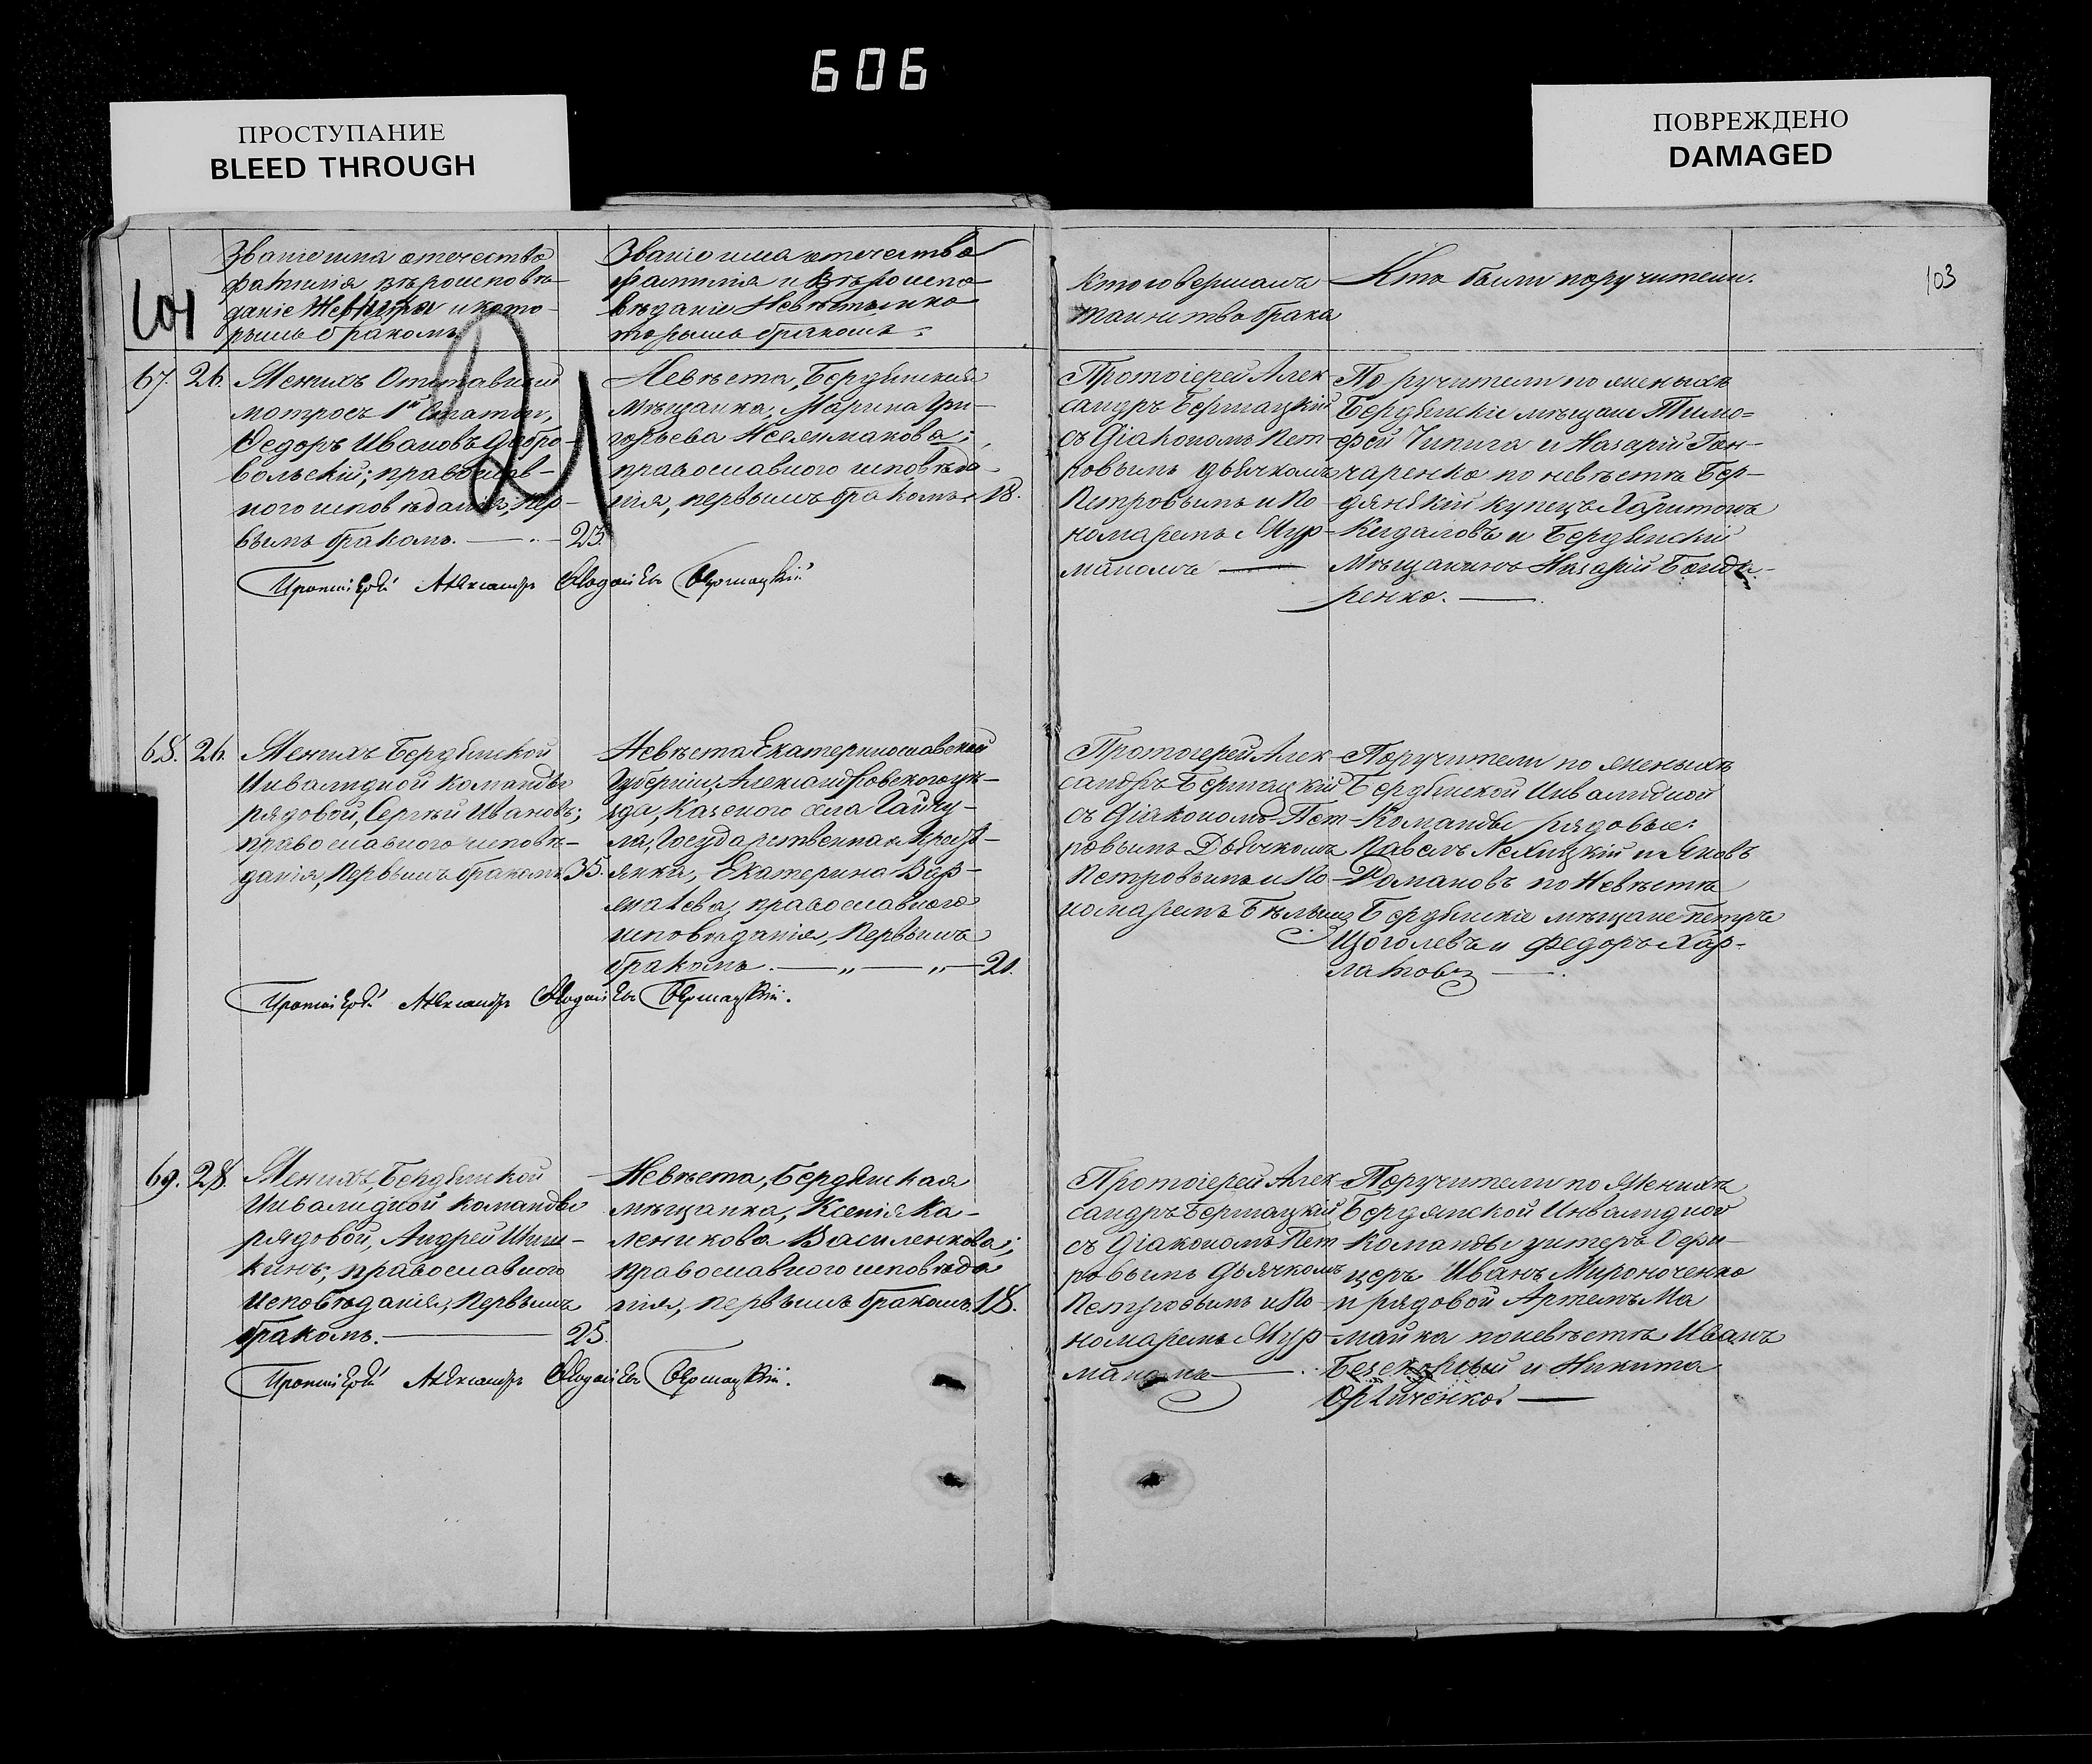 606
ПРОСТУПАНИЕ
BLEED THROUGH
ПОВРЕЖДЕНО
DAMAGED
Званіе имя отечество
фамилія вѣроисповѣ-
даніе Жениха и кото-
рымъ бракомъ.
Званіе имя отечество
фамилія и вѣроиспо-
вѣданіе Невѣсты и ко
торымъ бракомъ.
Кто совершалъ
таинство брака
Кто были поручители.
103
67. 26. Женихъ Отставный
матросъ 1й Статьи,
Федоръ Ивановъ Добро-
вольскій; православ-
ного исповѣданія, пер-
вымъ бракомъ. — 23.
Невѣста, Бердянская
мѣщанка, Марина Гри-
горьева
православного исповѣда-
нія, первымъ бракомъ. 18.
Протоіерей Алек-
сандръ Бершацкій
съ Діакономъ Пет-
ровымъ дьячкомъ
Петровымъ и По-
номаремъ Мур-
маномъ
По ручители по женихѣ
Бердянскіе мѣщане Тимо-
фей Чипига и Назарій Гон-
чаренко по невѣстѣ Бер-
дянскій купецъ Харитонъ
Кидаловъ и Бердянскій
Мѣщанинъ Назарій Бонда-
ренко.
Протоіерей Александръ Бершацкій
68. 26. Женихъ Бердянской
Инвалидной команды
рядовой, Сергѣй Ивановъ;
православного исповѣ-
данія, Первымъ бракомъ 35.
Невѣста Екатеринославской
Губерніи, Александровского уѣ-
зда, Казеного села Гайчу-
ла, Государственная Крестъ-
янка, Екатерина
православного
исповѣданія, Первымъ
бракомъ. — „ — „ — 21.
Протоіерей Алек-
сандръ Бершацкій
съ Діакономъ Пет-
ровымъ Дьячкомъ
Петровымъ и По-
номаремъ
Поручители по женихѣ
Бердянской Инвалидной
Команды рядовые:
Павелъ и Яковъ
Романовъ по Невѣстѣ
Бердянскіе мѣщане Петръ
Щоголевъ и Федоръ Хар-
латовъ
Протоіерей Александръ Бершацкій.
69. 28. Женихъ, Бердянской
Инвалидной команды
рядовой, Андрей Шиш-
кинъ; православного
исповѣданія, Первымъ
бракомъ. — 25.
Невѣста, Бердянская
мѣщанка, Ксенія Ка-
леникова Василенкова;
православного исповѣда
нія, первымъ бракомъ. 18.
Протоіерей Алек-
сандръ Бершацкій
съ Діакономъ Пет
ровымъ Дьячкомъ
Петровымъ и По-
номаремъ Мур-
маномъ
Поручители по Женихѣ
Бердянской Инвалидной
Команды унтеръ Офи-
церъ Иванъ Мироноченко
и рядовой Артемъ Ма
майка по невѣстѣ Иванъ
и Никита
Протоіерей Александръ Бершацкій.